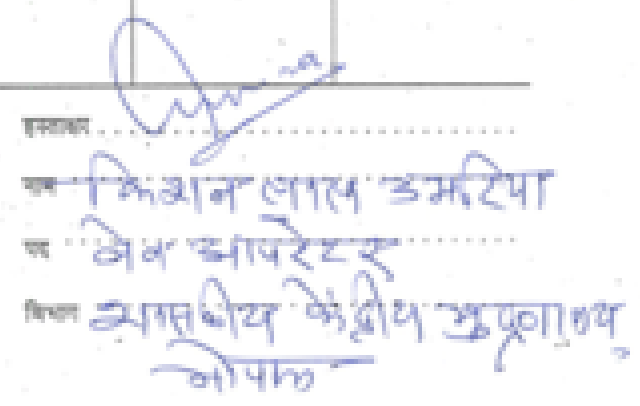 हस्ताक्षर
नाम किशन लाल उमरिया
पद वेब आपरेटर
विभाग शासकीय केंद्रीय मुद्रणालय
भोपाल